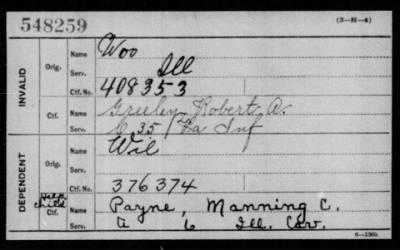 548259 (3-H-4)
INVALID
Orig. Name Woo
Serv. Ill
Ctf. No. 408353
Ctf. Name Greeley, Robert A.
Serv. C. 35 Ia Inf
DEPENDENT
Orig. Name Wil
Serv.
Ctf. No. 376374
Help. child
Ctf. Name Payne, Manning C.
Serv. A 6 Ill. Cav.